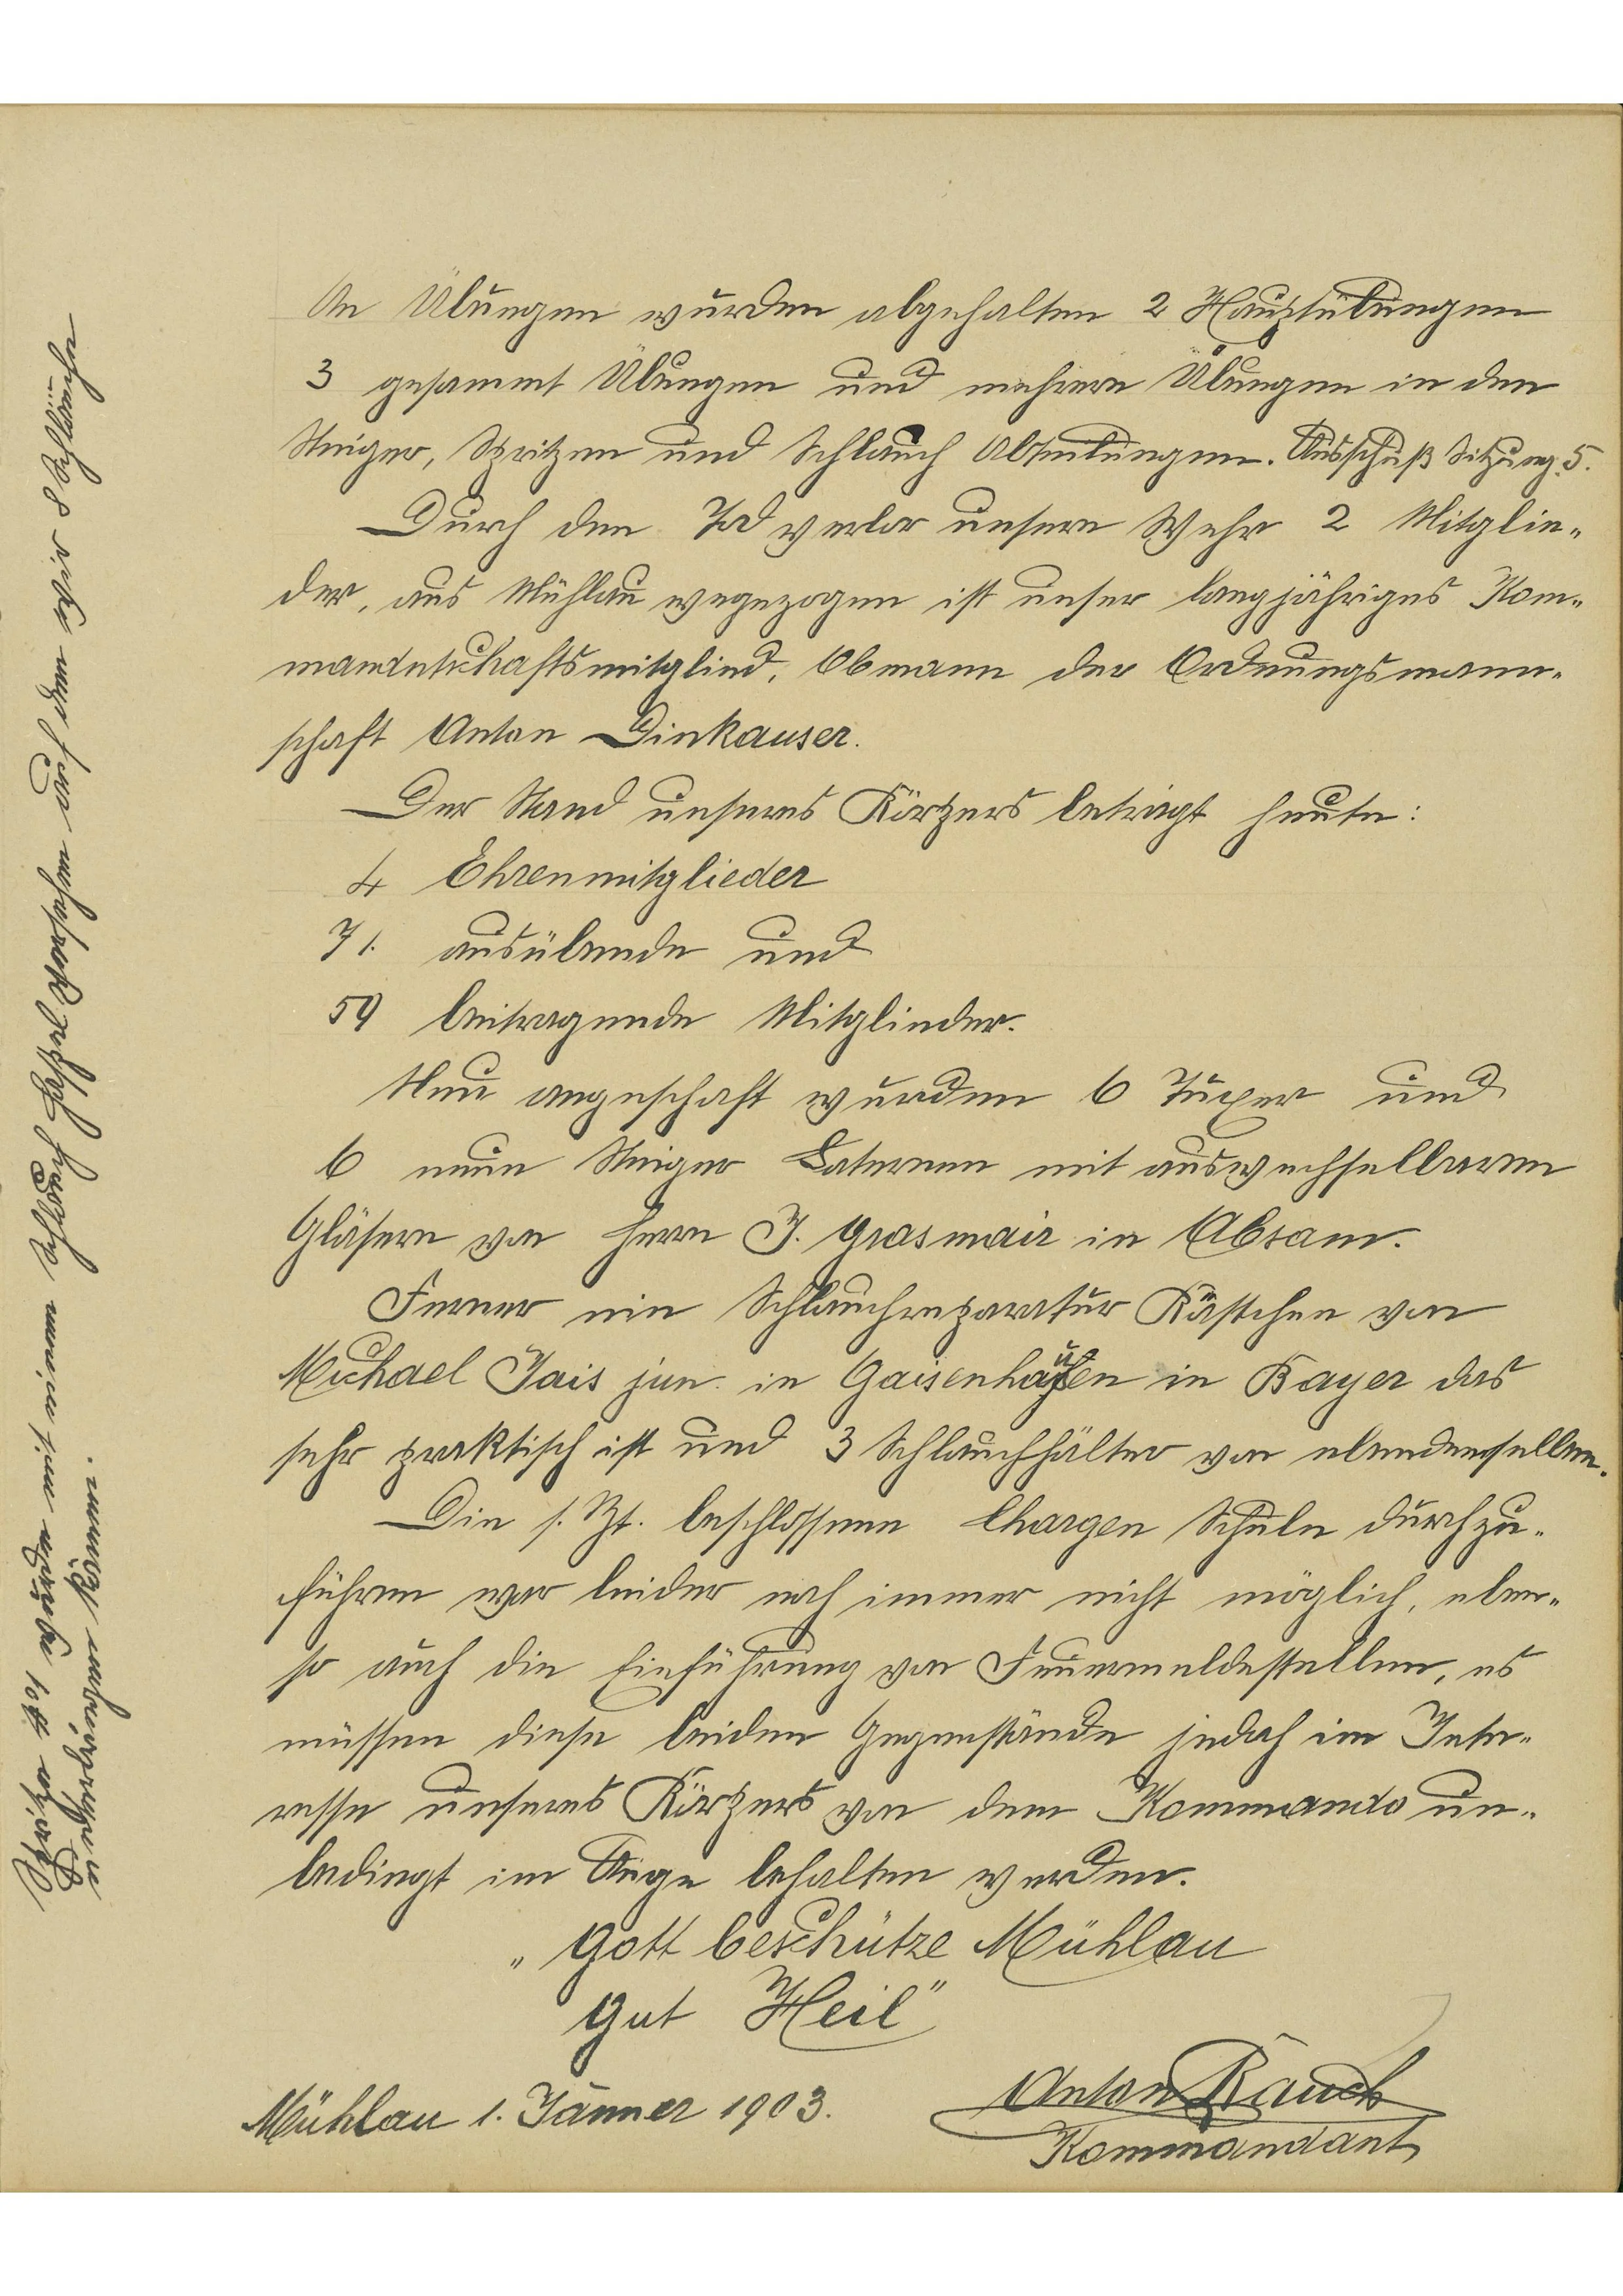 An Übungen wurden abgehalten 2 Hauptübungen
3 gesammt Übungen und mehrere Übungen in den
Steiger, Spritzen und Schlauch Abteilungen. Ausschuß Sitzung 5.
Durch den Tod verlor unsere Wehr 2 Mitglie-
der, aus Mühlau wegezogen ist unser langjähriges Kom-
mandntschaftsmitglied, Obmann der Ordnungsmann-
schaft Anton Dinkauser.
Der Stand unseres Körpers beträgt heute:
4 Ehrenmitglieder
71. ausübende und
59 beitragende Mitglieder.
Neu angeschaft wurden 6 Tuxer und
6 neue Steiger Laternen mit auswechselbaren
Gläsern von Herrn J. Grasmair in Absam.
Ferner ein Schlauchreparatur Kästchen von
Michael Jais jun. in Gaisenhausen in Bayer das
sehr praktisch ist und 3 Schlauchhälter von ebendemselben.
Die s. Zt. beschlossene Chargen Schule durchzu-
führen war leider noch immer nicht möglich, eben-
so auch die Einführung von Feuermeldestellen, es
müssen diese beiden Gegenstände jedoch im Inter-
resse unseres Körpers von dem Kommando un-
bedingt im Auge behalten werden.
„Gott beschütze Mühlau
Gut Heil"
Mühlau 1. Jänner 1903.
Anton Rauch
Kommandant